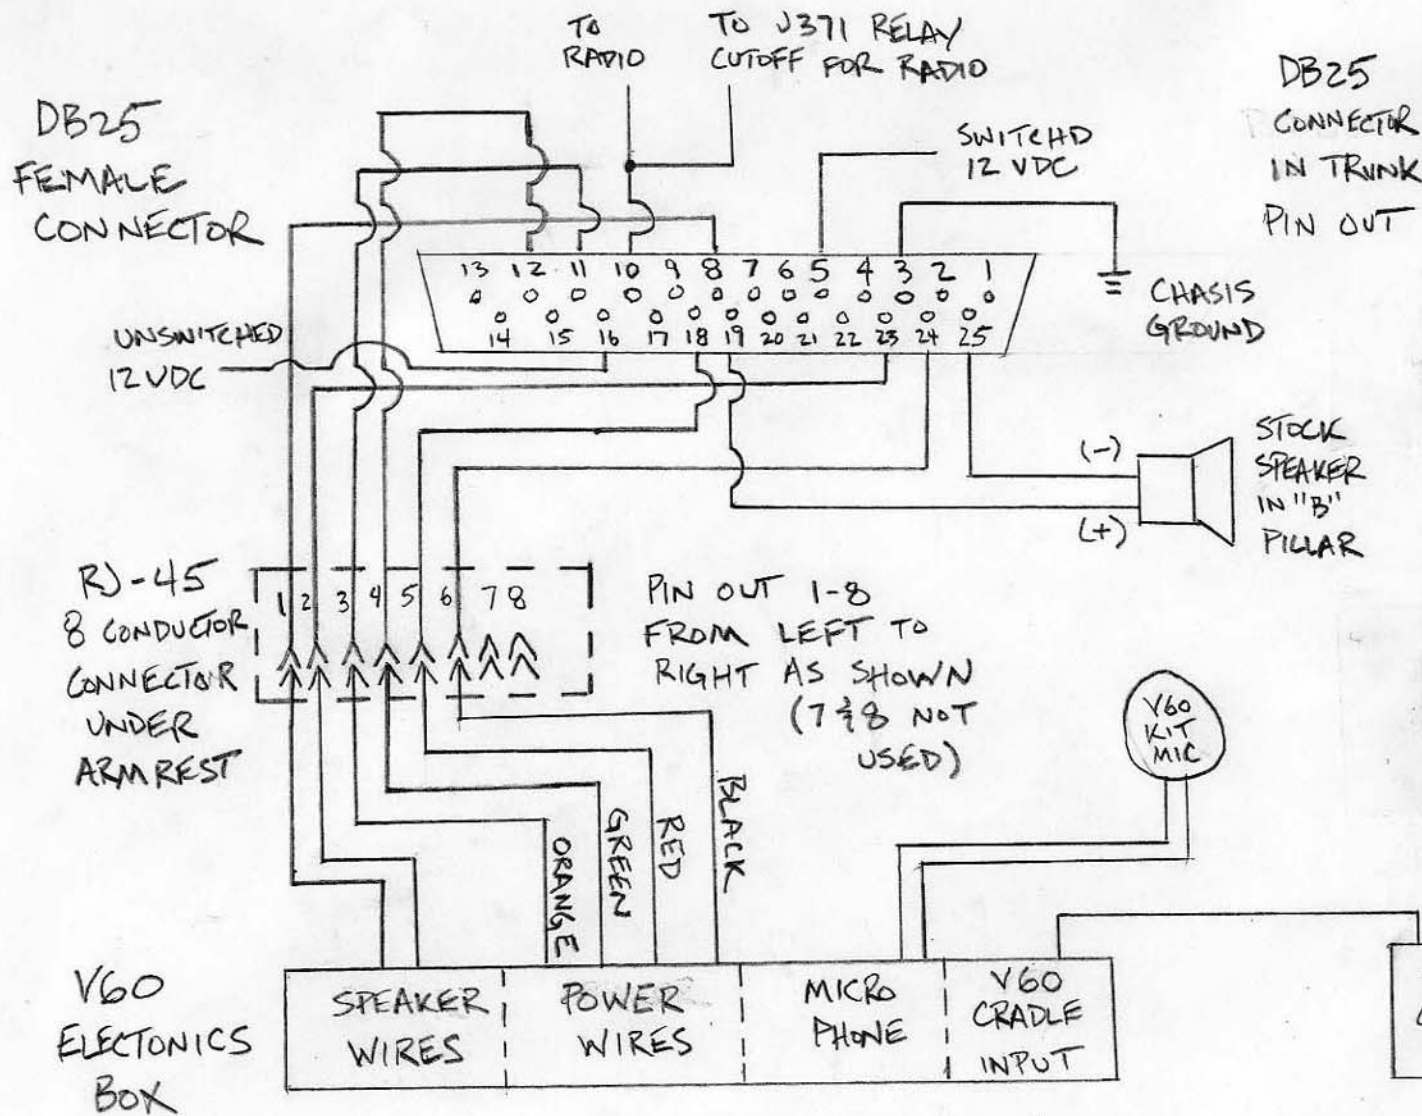 TO
RADIO
TO J371 RELAY
CUTOFF FOR RADIO
DB25
FEMALE
CONNECTOR
SWITCHD
12 VDC
DB25
CONNECTOR
IN TRUNK
PIN OUT
13 12 11 10 9 8 7 6 5 4 3 2 1
14 15 16 17 18 19 20 21 22 23 24 25
CHASIS
GROUND
UNSWITCHED
12 VDC
(-)
(+)
STOCK
SPEAKER
IN "B"
PILLAR
RJ-45
8 CONDUCTOR
CONNECTOR
UNDER
ARMREST
1 2 3 4 5 6 7 8
PIN OUT 1-8
FROM LEFT TO
RIGHT AS SHOWN
(7 & 8 NOT
USED)
V60
KIT
MIC
ORANGE
GREEN
RED
BLACK
V60
ELECTONICS
BOX
SPEAKER
WIRES
POWER
WIRES
MICRO
PHONE
V60
CRADLE
INPUT